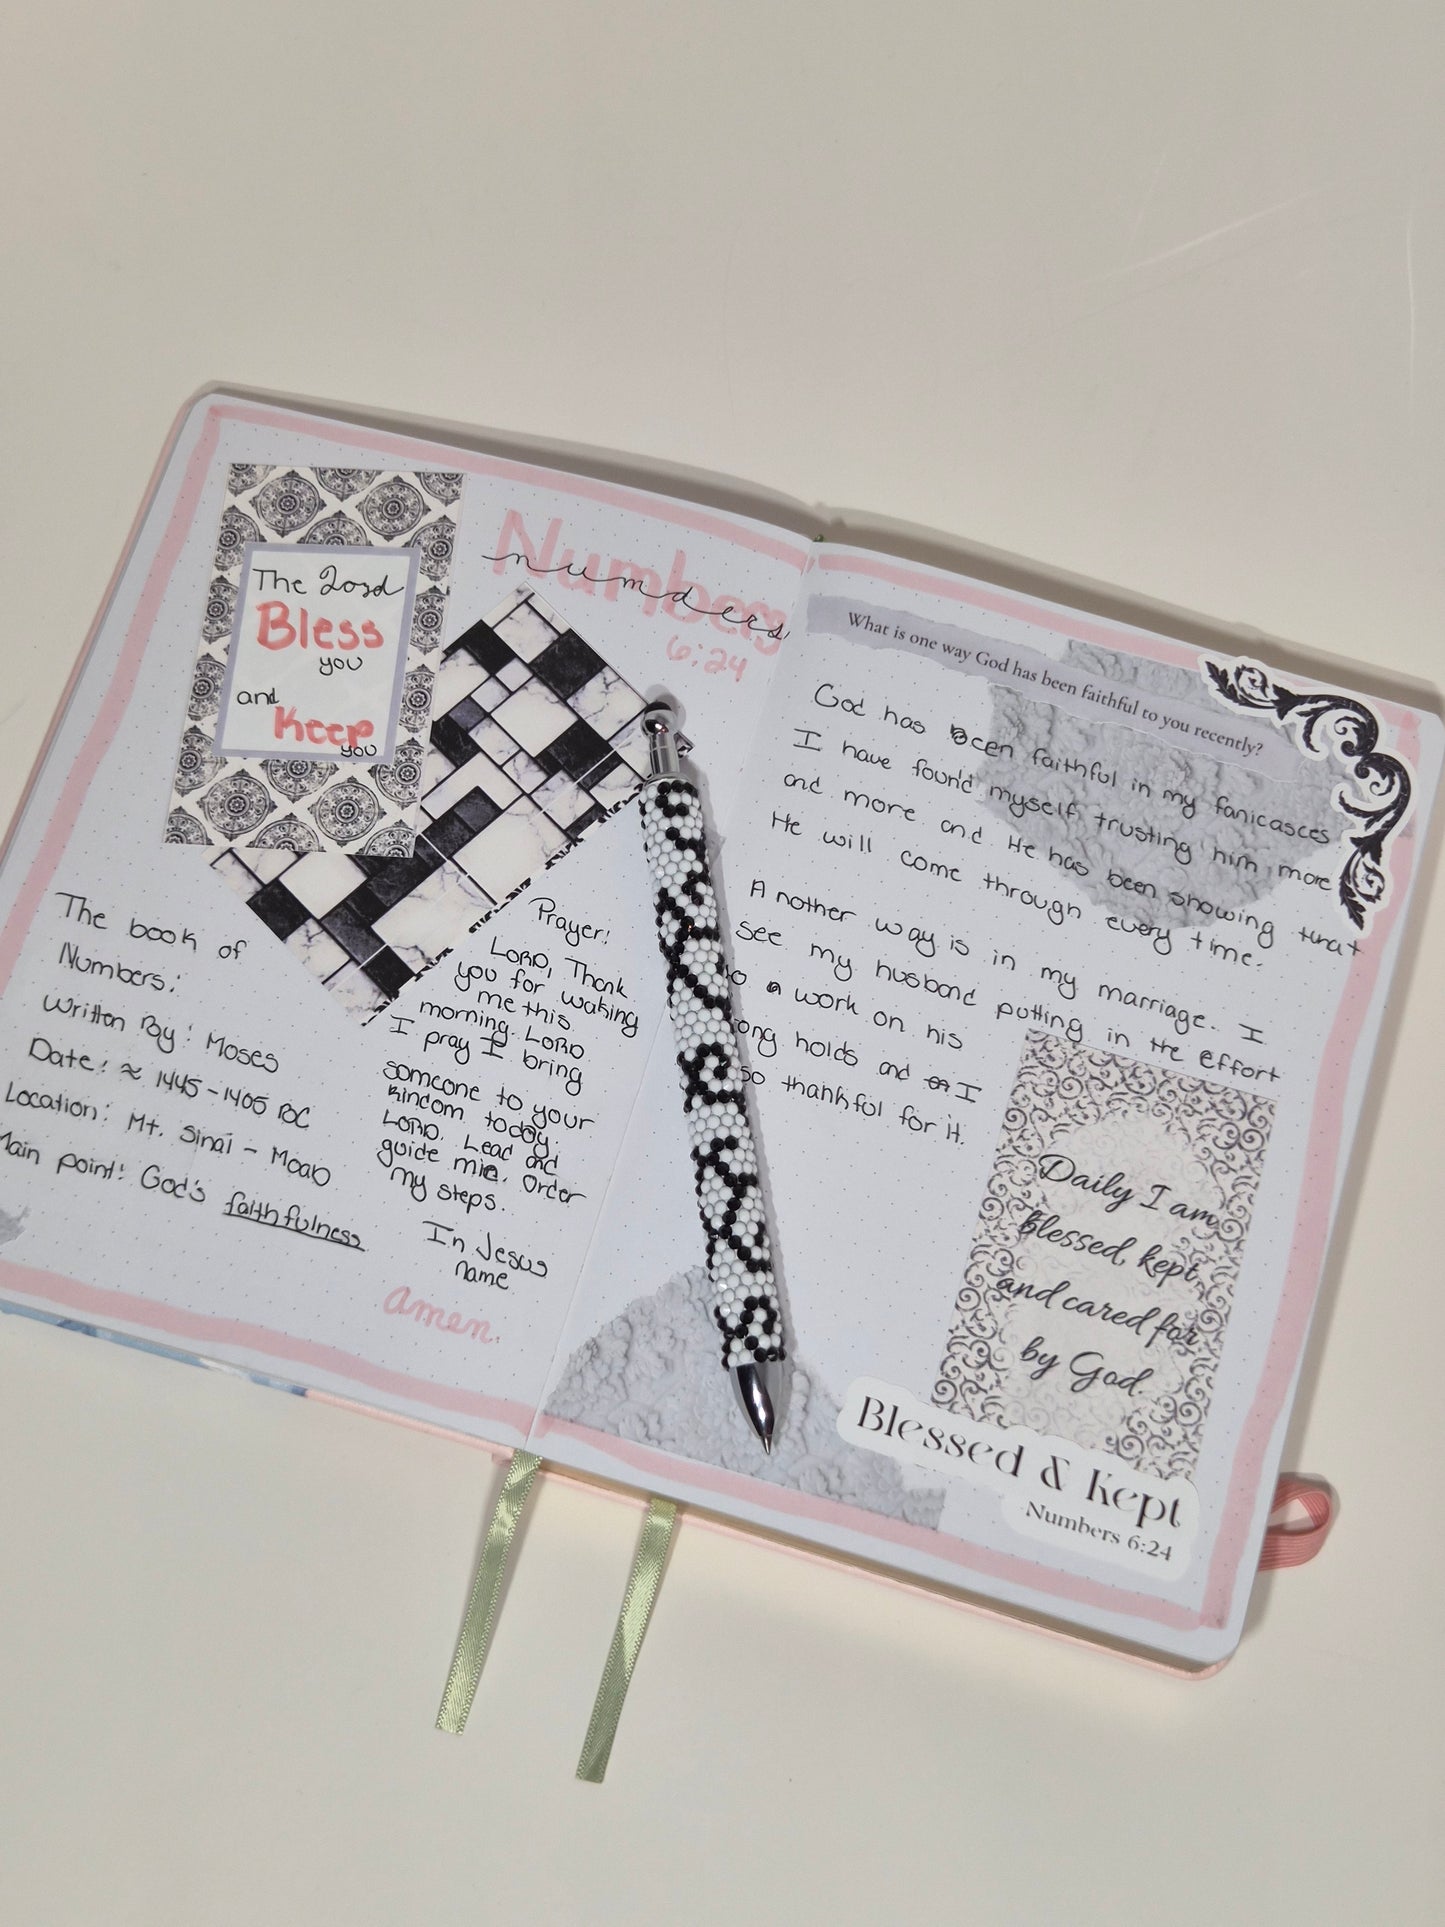 The Lord
Bless
you
and
Keep
you
Numbers
numbers
6:24
The book of
Numbers:
Written By: Moses
Date: ≈ 1445-1405 BC
Location: Mt. Sinai - Moab
Main point: God's faithfulness
Prayer!
LORD, Thank
you for waking
me this
morning. LORD
I pray I bring
someone to your
Kindom today.
LORD. Lead and
guide me. Order
my steps.
In Jesus
name
amen.
What is one way God has been faithful to you recently?
God has been faithful in my fanicasces
I have found myself trusting him more
and more and He has been showing that
He will come through every time.
Another way is in my marriage. I
see my husband putting in the effort
to work on his
ong holds and I
so thankful for it.
Daily I am
blessed, kept
and cared for
by God.
Blessed & Kept
Numbers 6:24